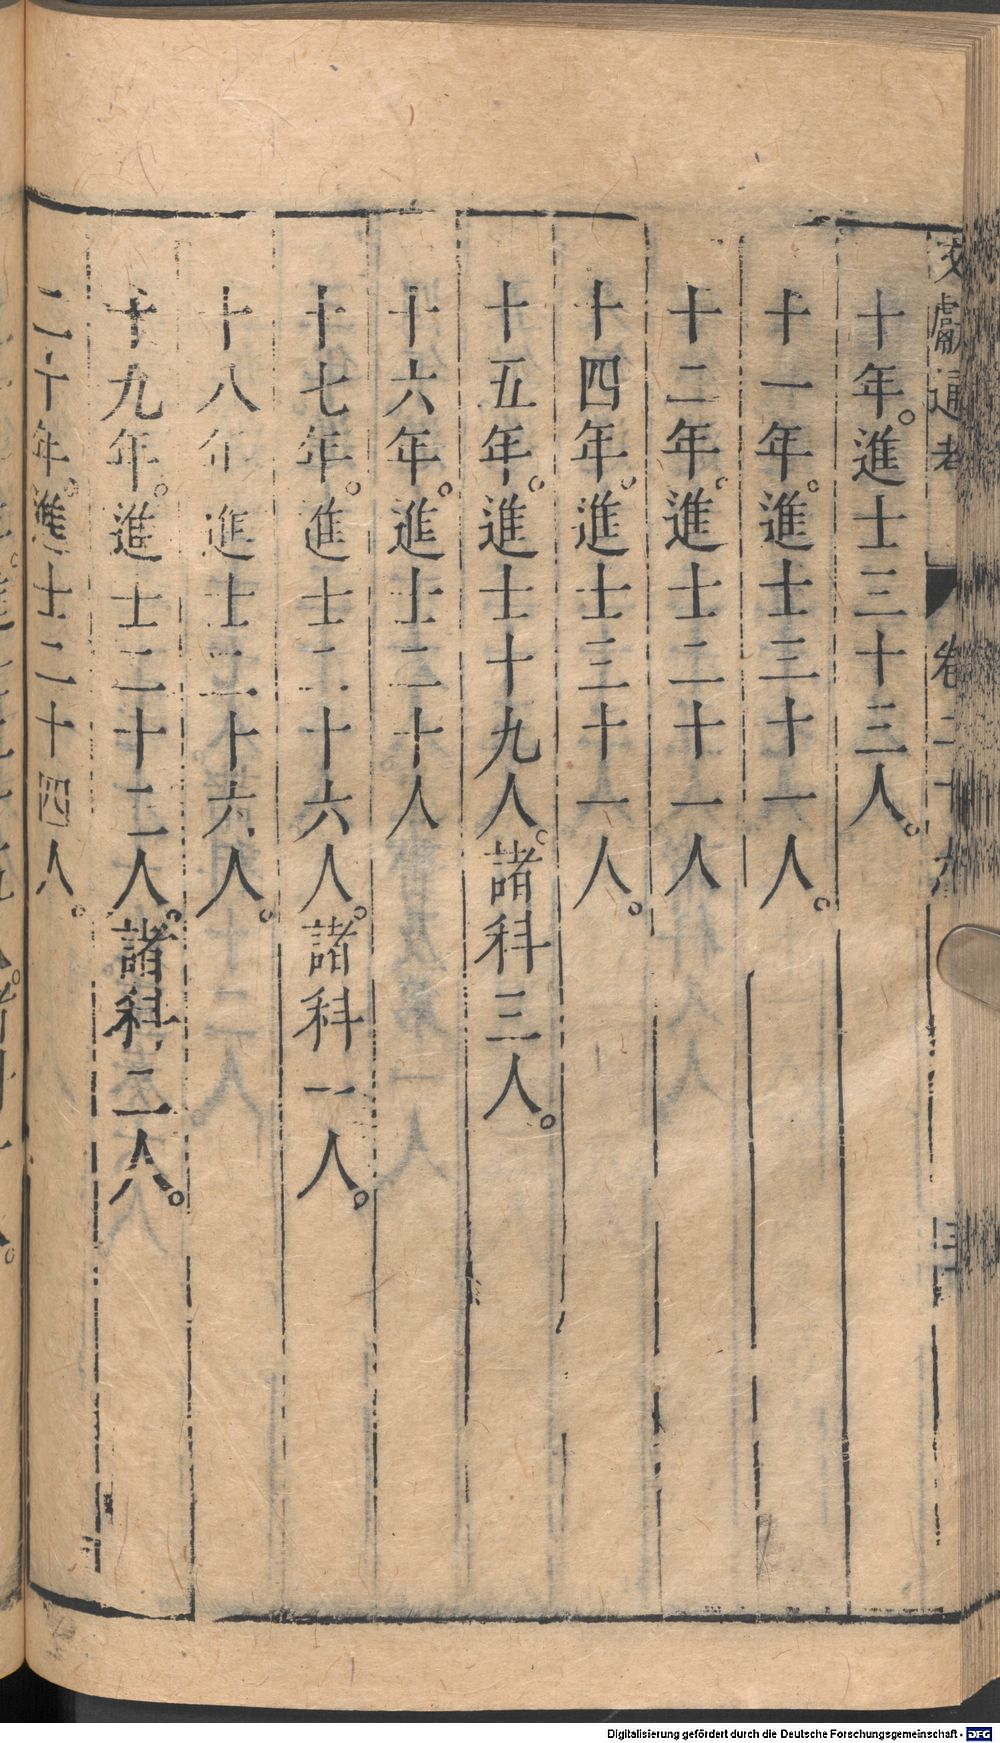 文獻通考 卷二十
十年。進士三十三人。
十一年。進士三十一人。
十二年。進士二十一人
十四年。進士三十一人。
十五年。進士十九人。諸科三人。
十六年。進士二十人
十七年。進士二十六人。諸科一人。
十八年進士二十六人。
十九年。進士二十二人。諸科二人。
二十年。進士二十四人。
Digitalisierung gefördert durch die Deutsche Forschungsgemeinschaft - DFG